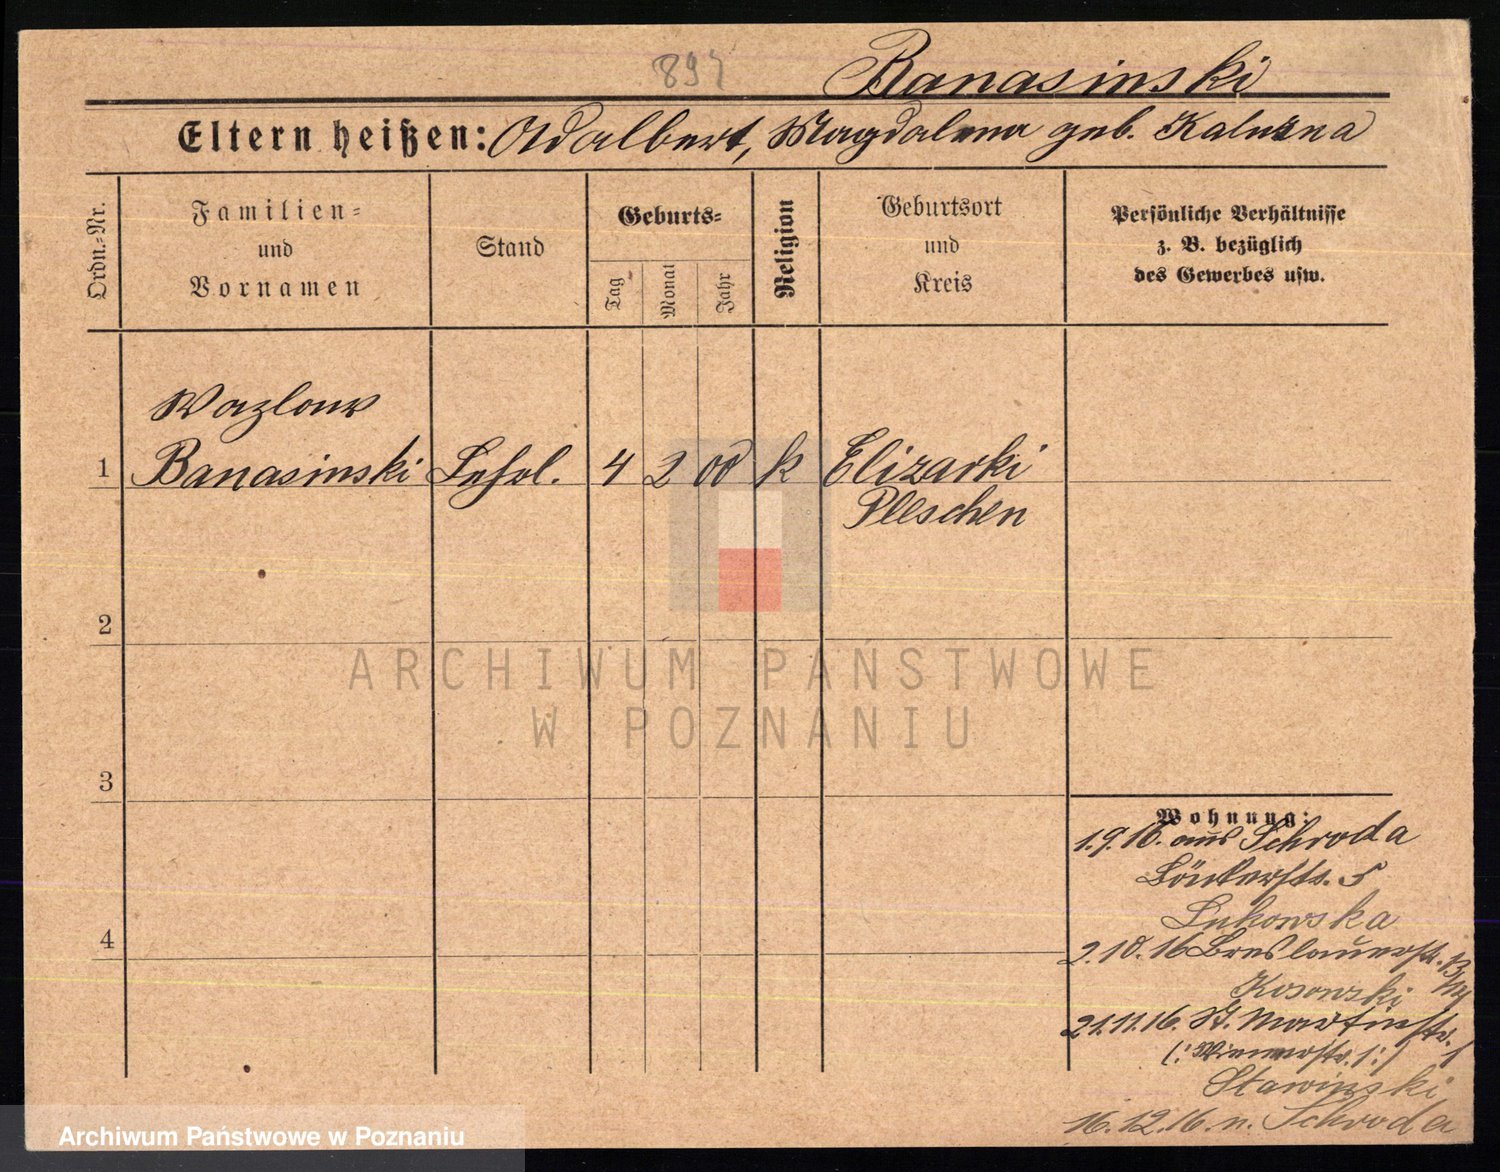 897
Banasinski
Eltern heißen: Adalbert, Magdalena geb. Kaluzna
Ordn.=Nr.
Familien=
und
Vornamen
Stand
Geburts=
Tag
Monat
Jahr
Religion
Geburtsort
und
Kreis
Persönliche Verhältnisse
z. B. bezüglich
des Gewerbes usw.
Wazlaw
1 Banasinski Lehrl. 4 2 00 k Elizarki
Pleschen
2
3
4
Wohnung:
1.9.16. aus Schroda
5
Lukowska
2.10.16 Breslauerstr. 13/14
Kosowski
21.11.16. St. Martinstr. 1
(: Wienerstr. 1 :)
Stawinski
16.12.16. n. Schroda
ARCHIWUM PAŃSTWOWE
W POZNANIU
Archiwum Państwowe w Poznaniu